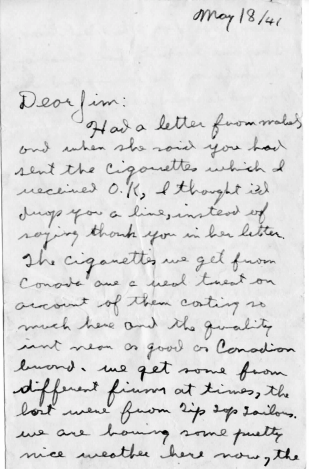 May 18/41
Dear Jim:
Had a letter from Mabel
and when she said you had
sent the cigarettes which I
received O.K, I thought i'd
drop you a line, instead of
saying thank you in her letter.
The cigarettes we get from
Canada are a real treat on
account of them costing so
much here and the quality
isnt near as good as Canadian
brand. we get some from
different firms at times, the
last were from Tip Top Tailors.
we are having some pretty
nice weather here now, the